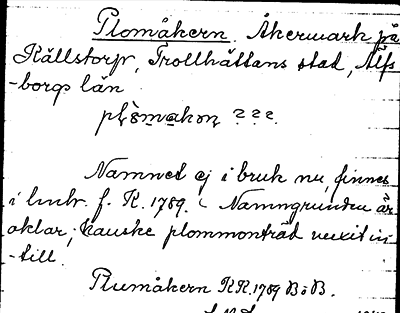 Plomåkern. Åkermark på
Källstorp, Trollhättans stad, Älfs
-borgs län.
???
Namnet ej i bruk nu, finnes
i lmtr. f. K. 1789. Namngrunden är
oklar; kanske plommonträd vuxit in
-till.
Plumåkern KK. 1789 BöB.